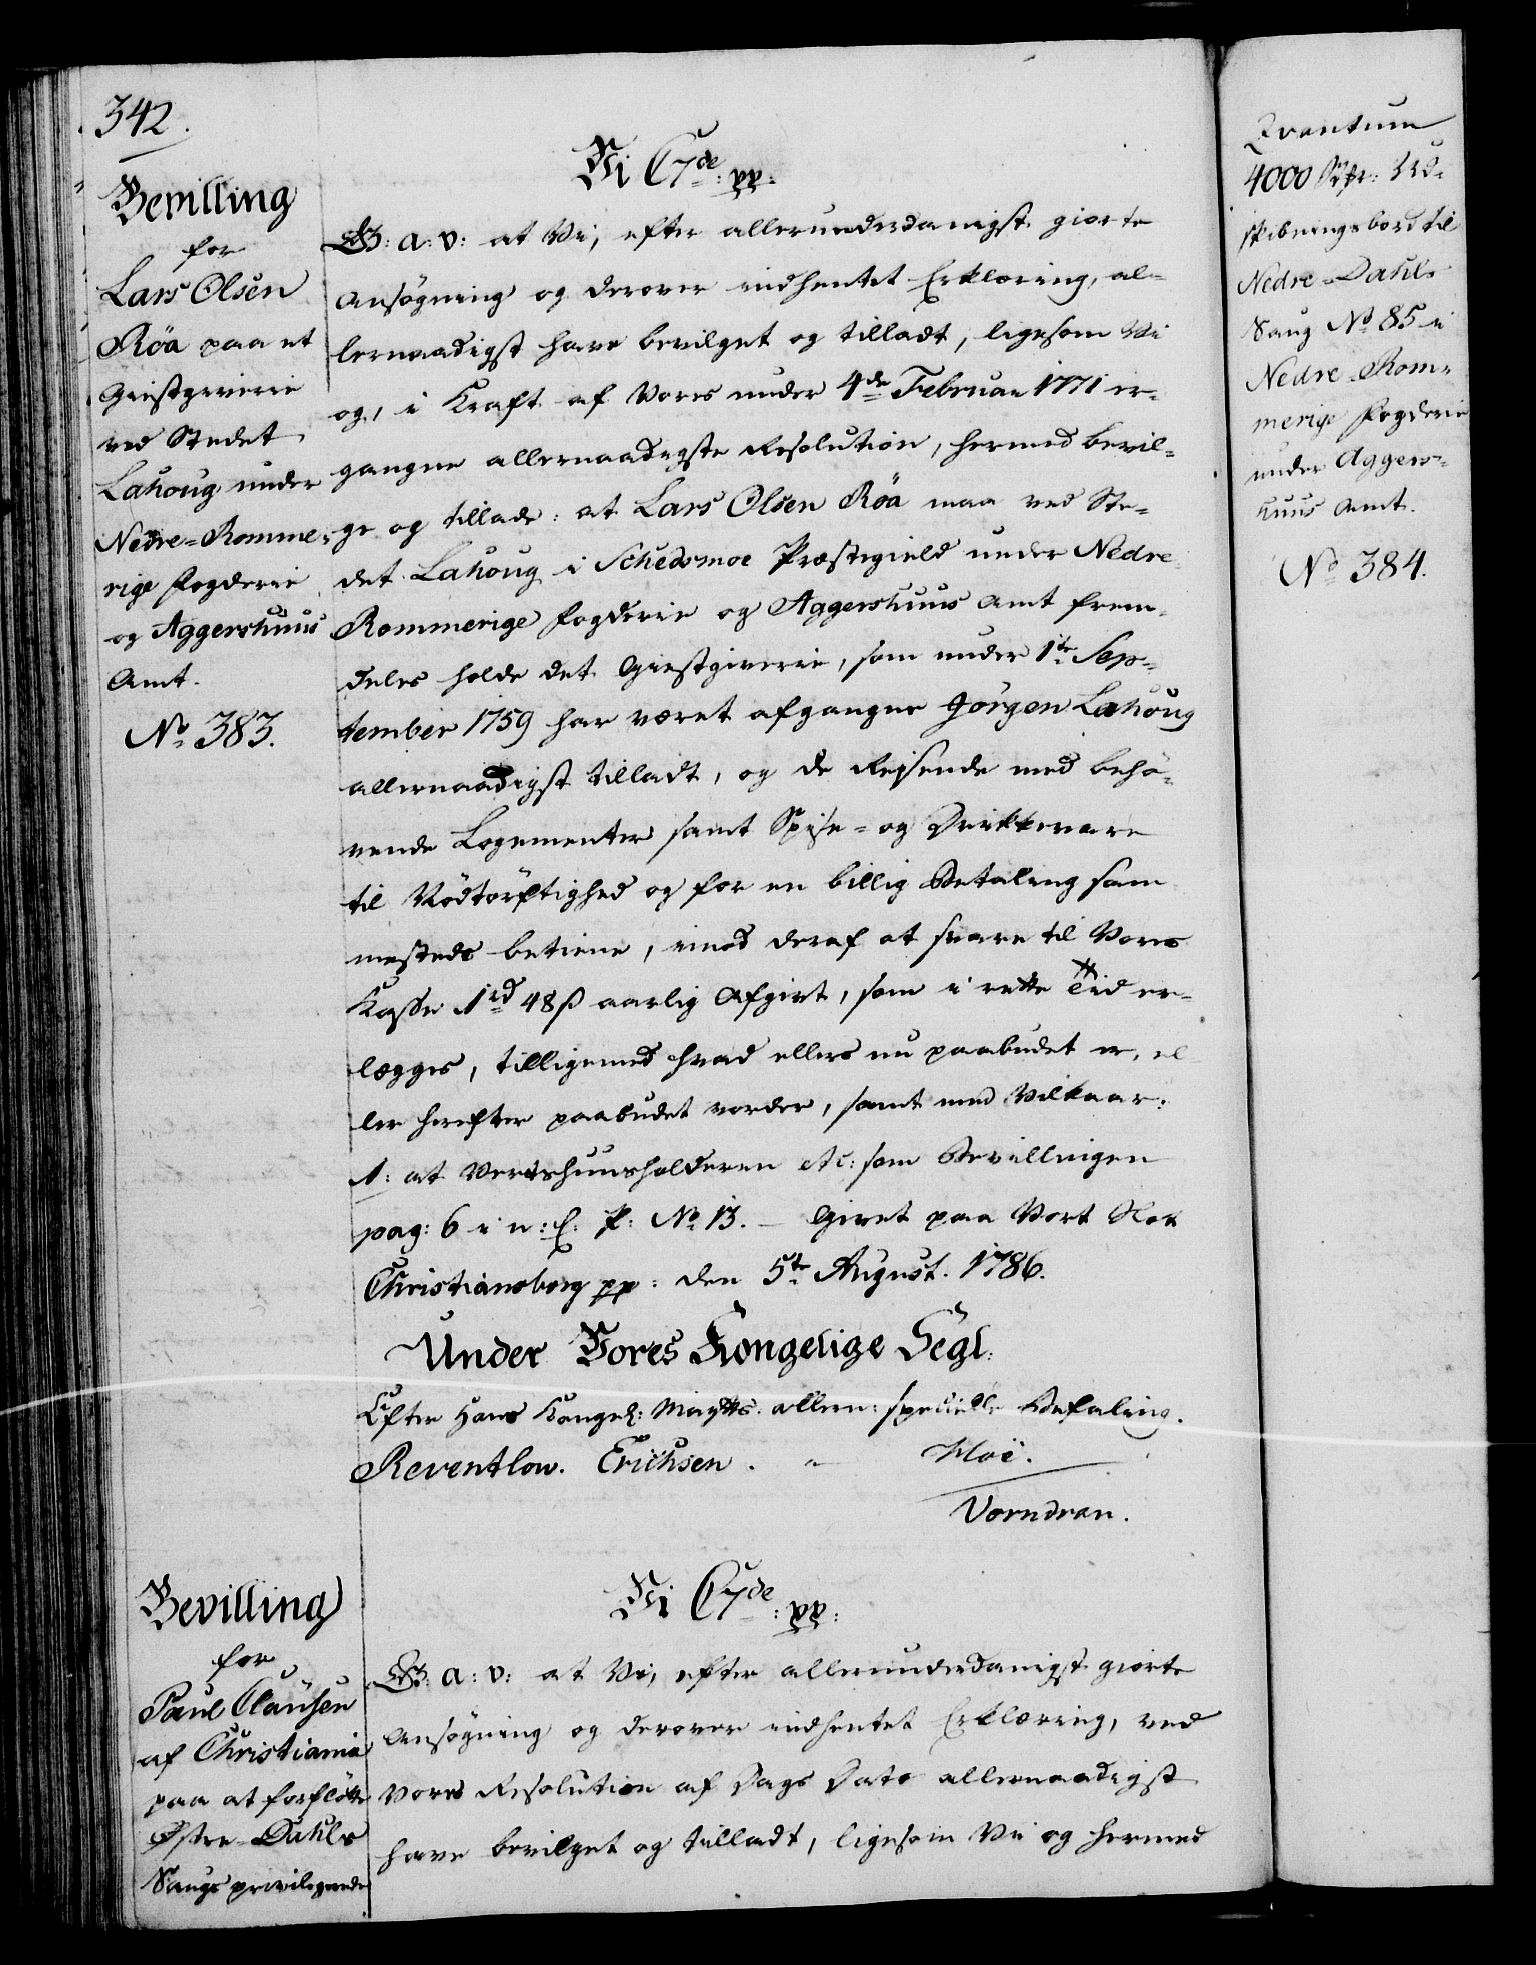 342.
Bevilling
for
Lars Olsen
Röa paa et
Giestgiverie
ved Stedet
Lahoug under
Nedre=Romme-
rige Fogderie
og Aggershuus
Amt.
No 383.
Vi C 7de: pp:
G: a: v: at Vi, efter allerunderdanigst giorte
Ansøgning og derover indhentet Erklæring, al-
lernaadigst have bevilget og tilladt, ligesom Vi
og, i Kraft af Vores under 4de Februar 1771 er-
gangne allernaadigste Resolution, hermed bevil-
ge og tillade: at Lars Olsen Röa maa ved Ste-
det Lahoug i Schedsmoe Præstegield under Nedre
Rommerige Fogderie og Aggershuus Amt frem-
deles holde det Giestgiverie, som under 1te Sep-
tember 1759 har været afgangne Jörgen Lahoug
allernaadigst tilladt, og de Rejsende med behö-
vende Logementer samt Spise= og Drikkevare
til Nödtörftighed og for en billig Betaling sam-
mesteds betiene, imod deraf at svare til Vores
Kasse 1rd 48ß aarlig Afgivt, som i rette Tid er-
lægges, tilligemed hvad ellers nu paabudet er, el
ler herefter paabudet vorder, samt med Vilkaar:
1: at Vertshuusholderen etc: som Bevillingen
pag: 6 i n: E: P: No 13. – Givet paa Vort Slot
Christiansborg pp: den 5te August. 1786.
Under Vores Kongelige Segl.
Efter Hans Kongel: Maytts. allern: specielle Befaling.
Reventlow. Erichsen. " Moë.
Vorndran.
Bevilling
for
Paul Clausen
af Christiania
paa at forflötte
Østre=Dahls
Saugs privilegerede
Vi C 7de: pp:
G: a: v: at Vi, efter allerunderdanigst giorte
Ansøgning og derover indhentet Erklæring, ved
Vores Resolution af Dags Dato allernaadigst
have bevilget og tilladt, ligesom Vi og hermed
Qvantum
4000 Ud-
skibningsbord til
Nedre=Dahls
Saug No 85 i
Nedre=Rom-
merige Fogderie
under Aggers-
huus Amt.
No 384.